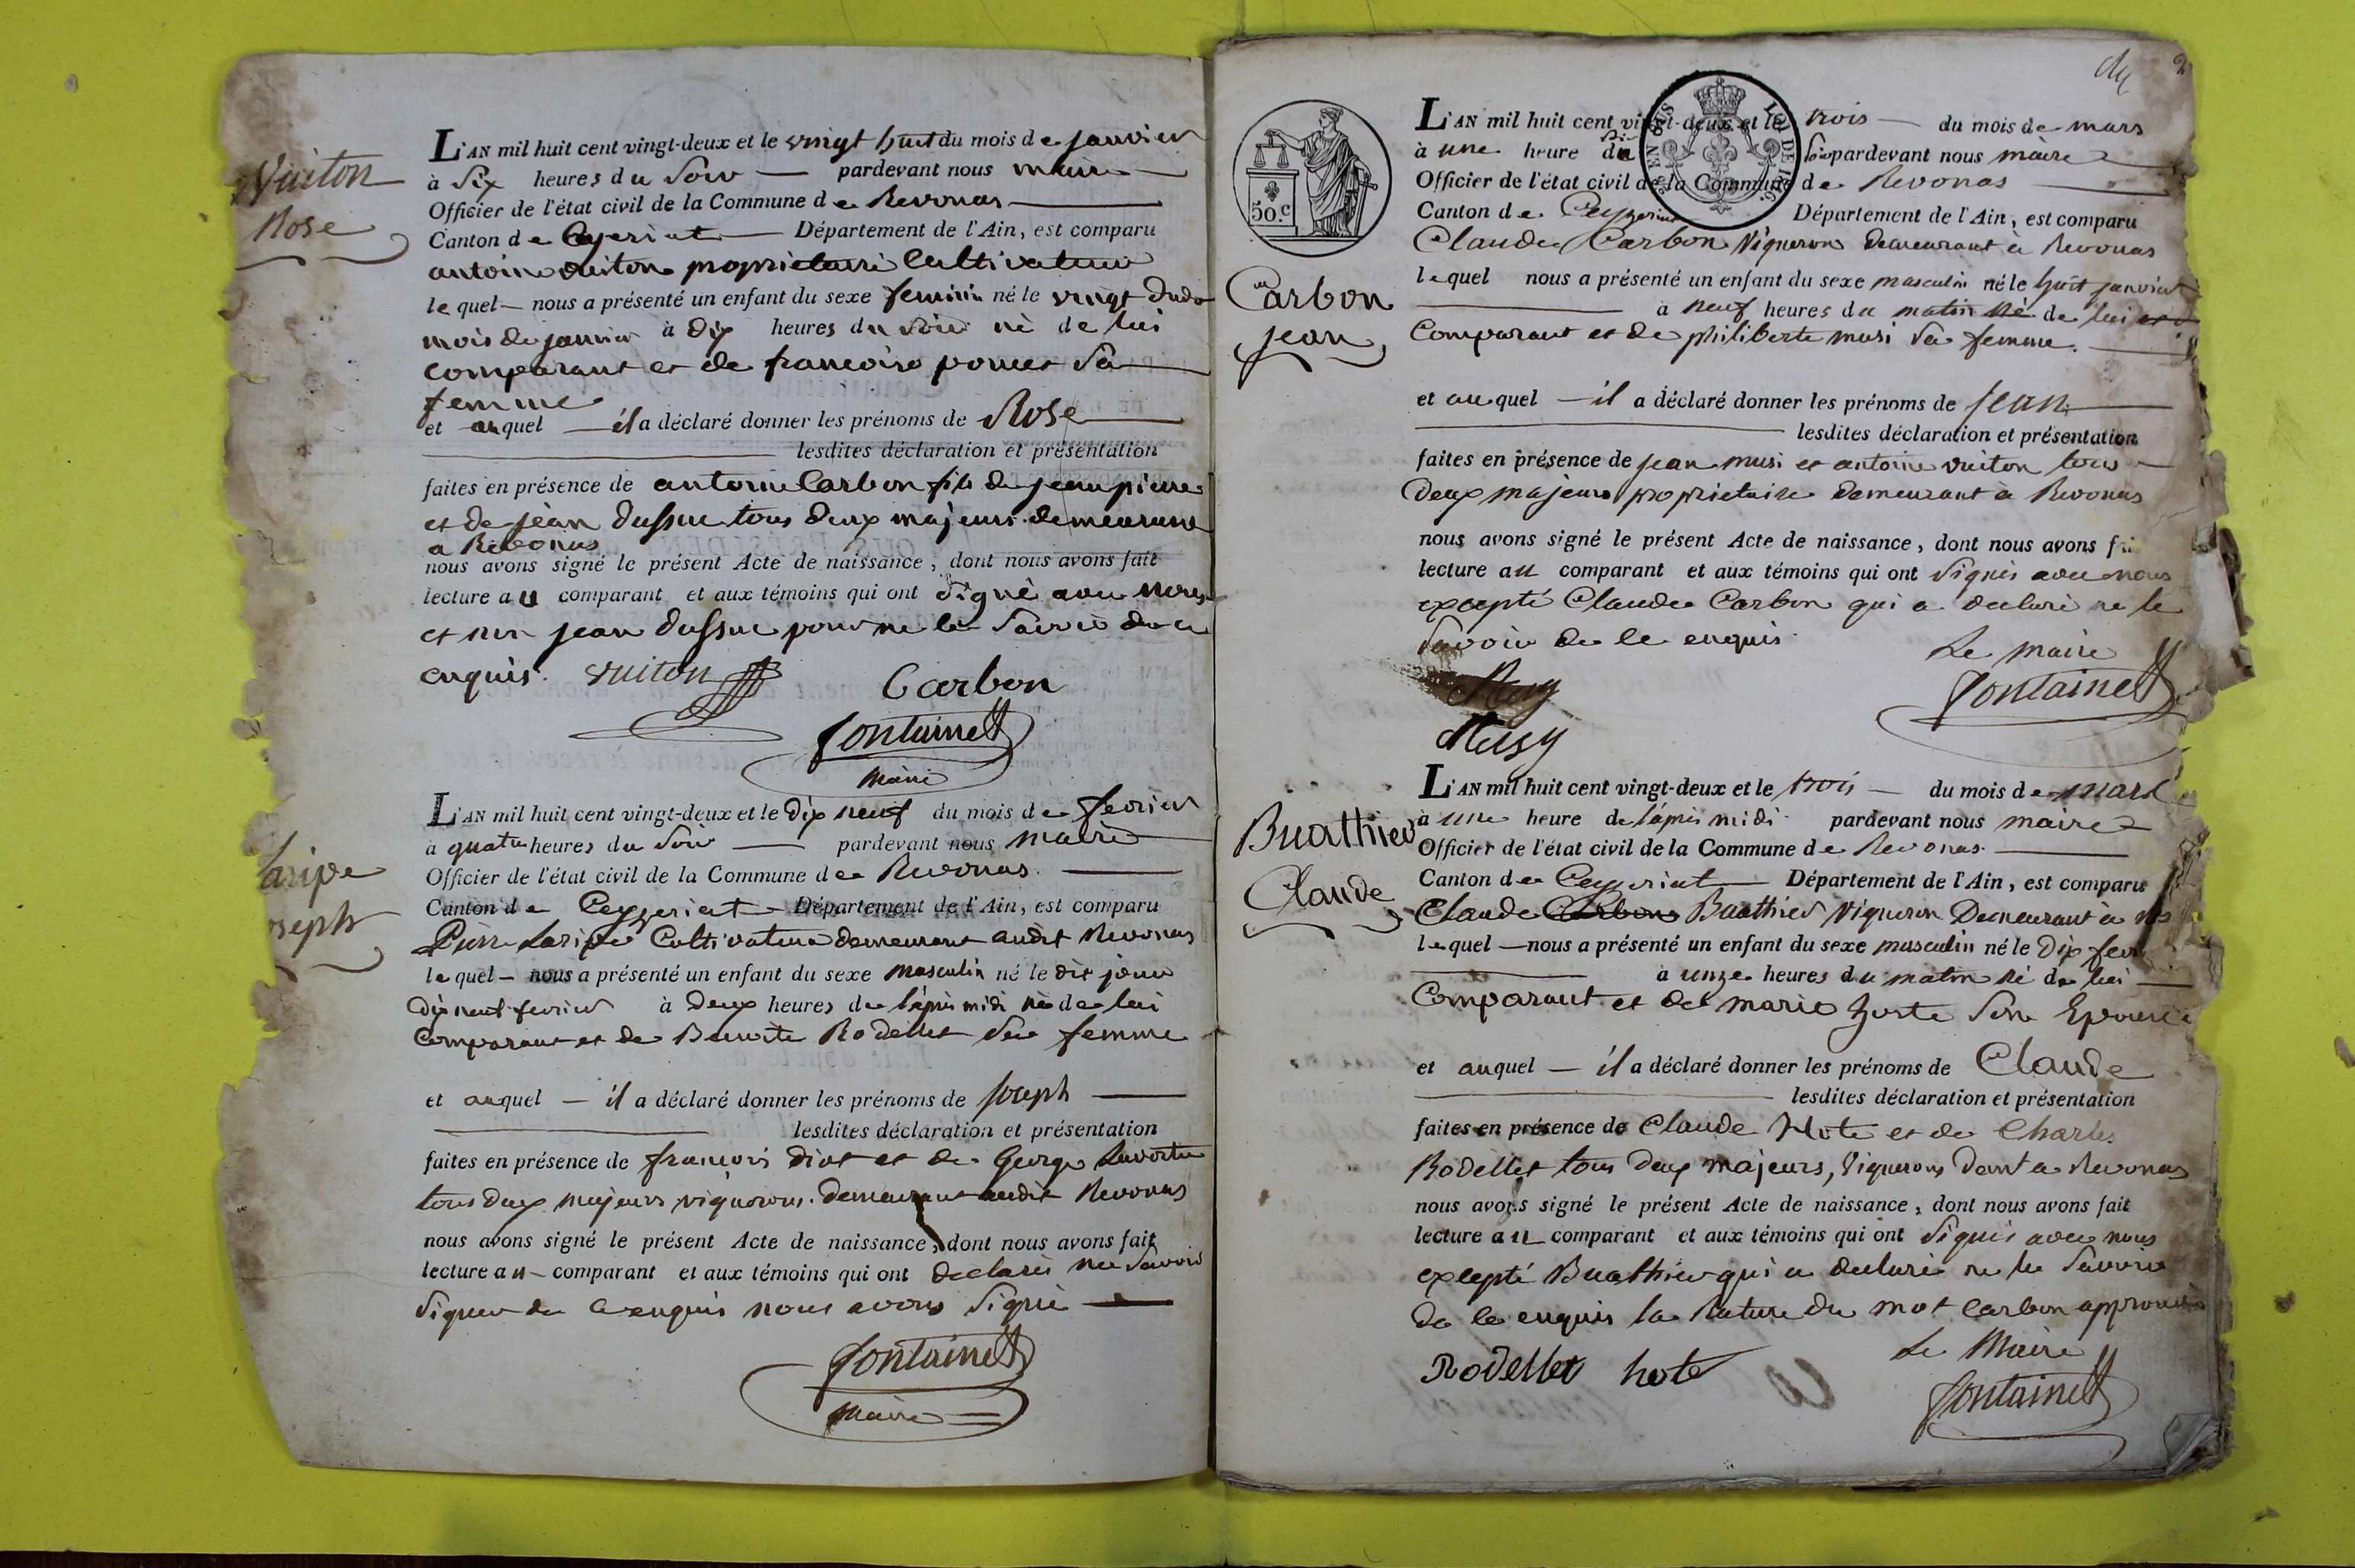 Vuiton
Rose
L'AN mil huit cent vingt-deux et le vingt huit du mois de janvier
à Six heures du Soir pardevant nous maire
Officier de l'état civil de la Commune de Revonas
Canton de Ceyzeriat Département de l'Ain, est comparu
antoine vuiton propriettaire Cultivateur
lequel nous a présenté un enfant du sexe feminin né le vingt dudt
mois de janvier à dix heures du soir né de lui
comparant et de francoise poncet Sa
femme
et auquel il a déclaré donner les prénoms de Rose
lesdites déclaration et présentation
faites en présence de antoine Carbon fils de jean pierre
et de jean dussuc tous deux majeurs demeurant
a Revonas
nous avons signé le présent Acte de naissance, dont nous avons fait
lecture au comparant et aux témoins qui ont Signé avec nous
et non jean dussuc pour ne le Savoir de ce
enquis. vuiton Carbon
fontaine
maire
Laripe
joseph
L'AN mil huit cent vingt-deux et le dix neuf du mois de fevrier
à quatre heures du Soir pardevant nous maire
Officier de l'état civil de la Commune de Revonas.
Canton de Ceyzeriat Département de l'Ain, est comparu
Pierre Laripe Cultivateur demeurant audit Revonas
lequel nous a présenté un enfant du sexe masculin né le dit jour
dix neuf fevrier à deux heures de l'aprés midi né de lui
Comparant et de Benoite Rodellet Sa femme
et auquel il a déclaré donner les prénoms de joseph
lesdites déclaration et présentation
faites en présence de francois diot et de George
tous deux majeurs vignerons demeurant audit Revonas
nous avons signé le présent Acte de naissance, dont nous avons fait
lecture au comparant et aux témoins qui ont declarés ne Savoir
Signer de ce enquis nous avons Signé
fontaine
maire
2
50.C
Carbon
jean
L'AN mil huit cent vingt-deux et le trois du mois de mars
à une heure du Soir pardevant nous maire
Officier de l'état civil de la Commune de Revonas
Canton de Ceyzeriat Département de l'Ain, est comparu
Claude Carbon Vigneron demeurant à Revonas
lequel nous a présenté un enfant du sexe masculin né le huit janvier
à neuf heures du matin né de lui
Comparant et de philiberte musi Sa femme.
et auquel il a déclaré donner les prénoms de jean
lesdites déclaration et présentation
faites en présence de jean musi et antoine vuiton tous
deux majeurs proprietaire demeurant à Revonas
nous avons signé le présent Acte de naissance, dont nous avons fai
lecture au comparant et aux témoins qui ont Signés avec nous
excepté Claude Carbon qui a declaré ne le
Savoir de ce enquis
Le maire
fontaine
Musy
Buathier
Claude
L'AN mil huit cent vingt-deux et le trois du mois de mars
à une heure de l'aprés midi pardevant nous maire
Officier de l'état civil de la Commune de Revonas.
Canton de Ceyzeriat Département de l'Ain, est comparu
Claude Carbon Buathier Vigneron Demeurant à
lequel nous a présenté un enfant du sexe masculin né le Dix fev
à unze heures du matin né de lui
Comparant et de marie Son Epouse
et auquel il a déclaré donner les prénoms de Claude
lesdites déclaration et présentation
faites en présence de Claude Hote et de Charles
Rodellet tous deux majeurs, Vignerons demt a Revonas
nous avons signé le présent Acte de naissance, dont nous avons fait
lecture au comparant et aux témoins qui ont Signés avec nous
excepté Buathier qui a declaré ne le Savoir
de ce enquis la Rature du mot Carbon approuvé
Le Maire
Rodellet hote fontaine